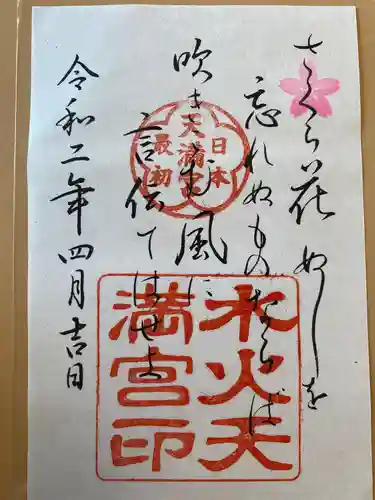 さくら花 ぬしを
忘れぬものならば
吹き来む風に
言伝てはせよ
令和二年四月吉日
日本
天満宮
最初
水火天
満宮印